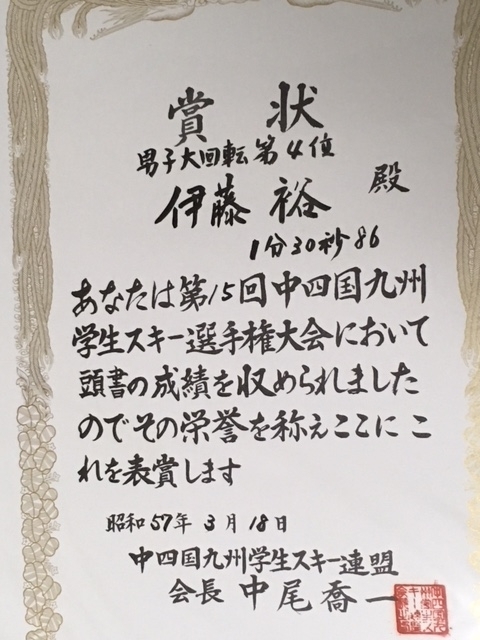 賞 状
男子大回転 第4位
伊藤 裕 殿
1分30秒86
あなたは第15回中四国九州
学生スキー選手権大会において
頭書の成績を収められました
のでその栄誉を称えここにこ
れを表賞します
昭和57年 3月 18日
中四国九州学生スキー連盟
会長 中尾喬一